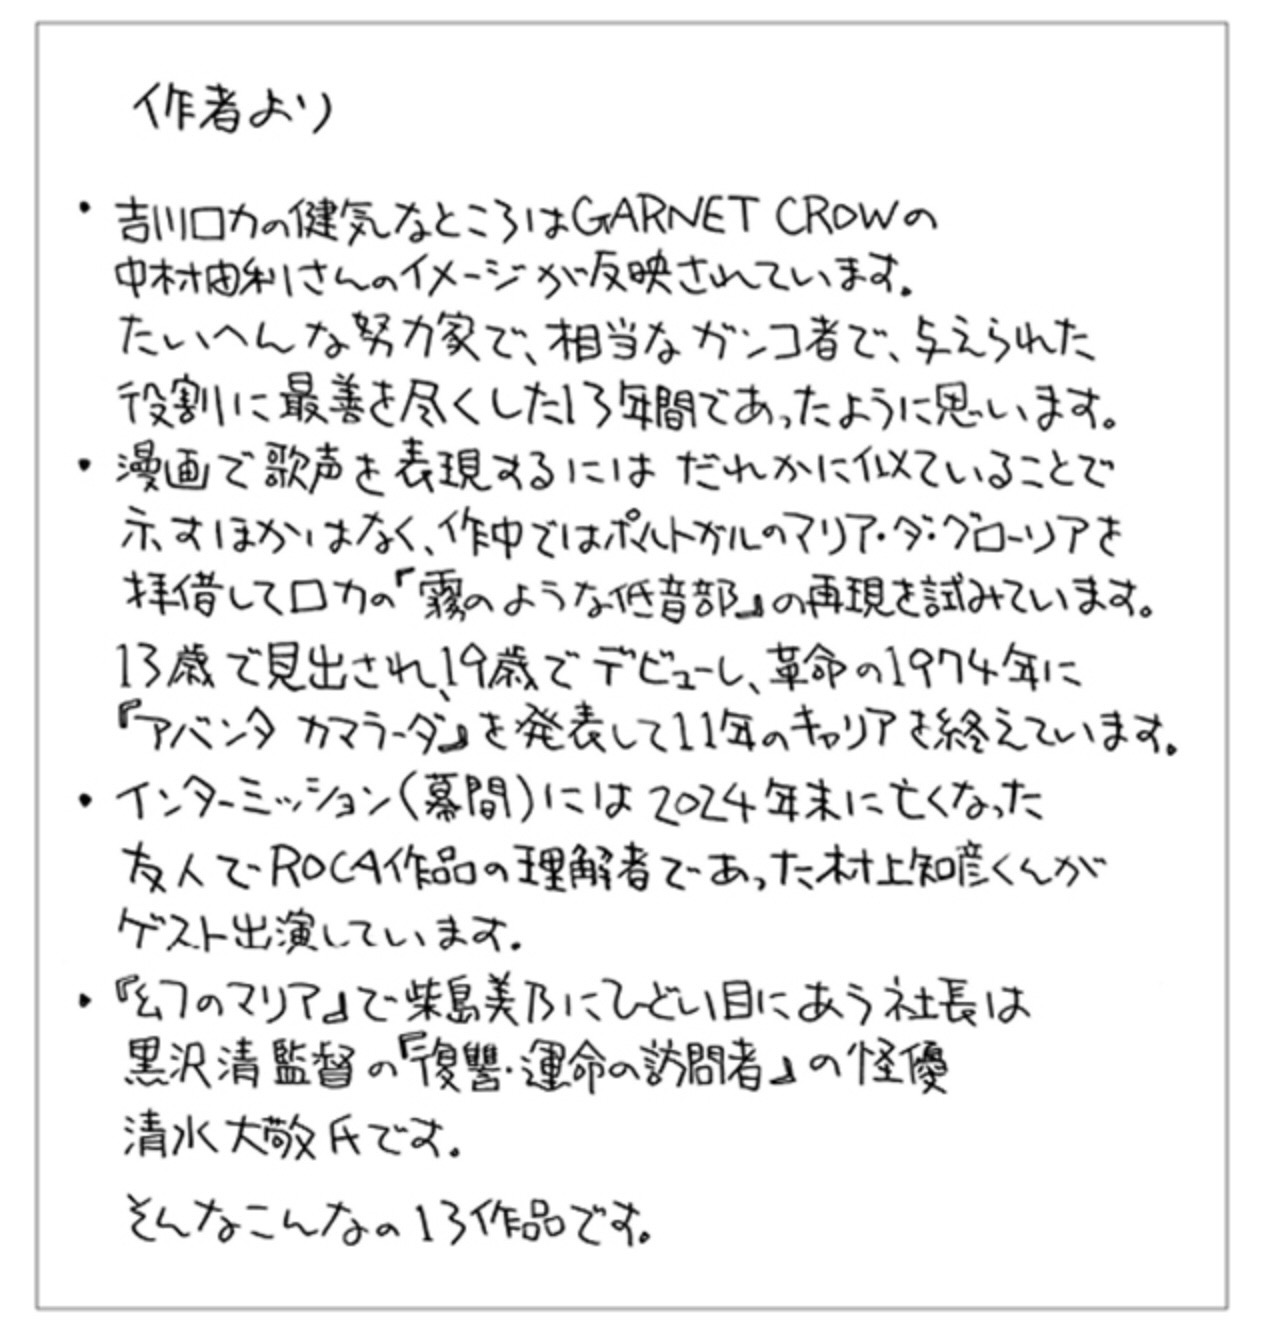 作者より
・吉川ロカの健気なところはGARNET CROWの
中村由利さんのイメージが反映されています。
たいへんな努力家で、相当なガンコ者で、与えられた
役割に最善を尽くした13年間であったように思います。
・漫画で歌声を表現するには だれかに似ていることで
示すほかはなく、作中ではポルトガルのマリア・ダ・グローリアを
拝借してロカの『霧のような低音部』の再現を試みています。
13歳で見出され、19歳でデビューし、革命の1974年に
『アバンタ カマラーダ』を発表して11年のキャリアを終えています。
・インターミッション(幕間)には2024年末に亡くなった
友人でROCA作品の理解者であった村上知彦くんが
ゲスト出演しています。
・『幻のマリア』で柴島美乃にひどい目にあう社長は
黒沢清監督の『復讐・運命の訪問者』の怪優
清水大敬氏です。
そんなこんなの13作品です。